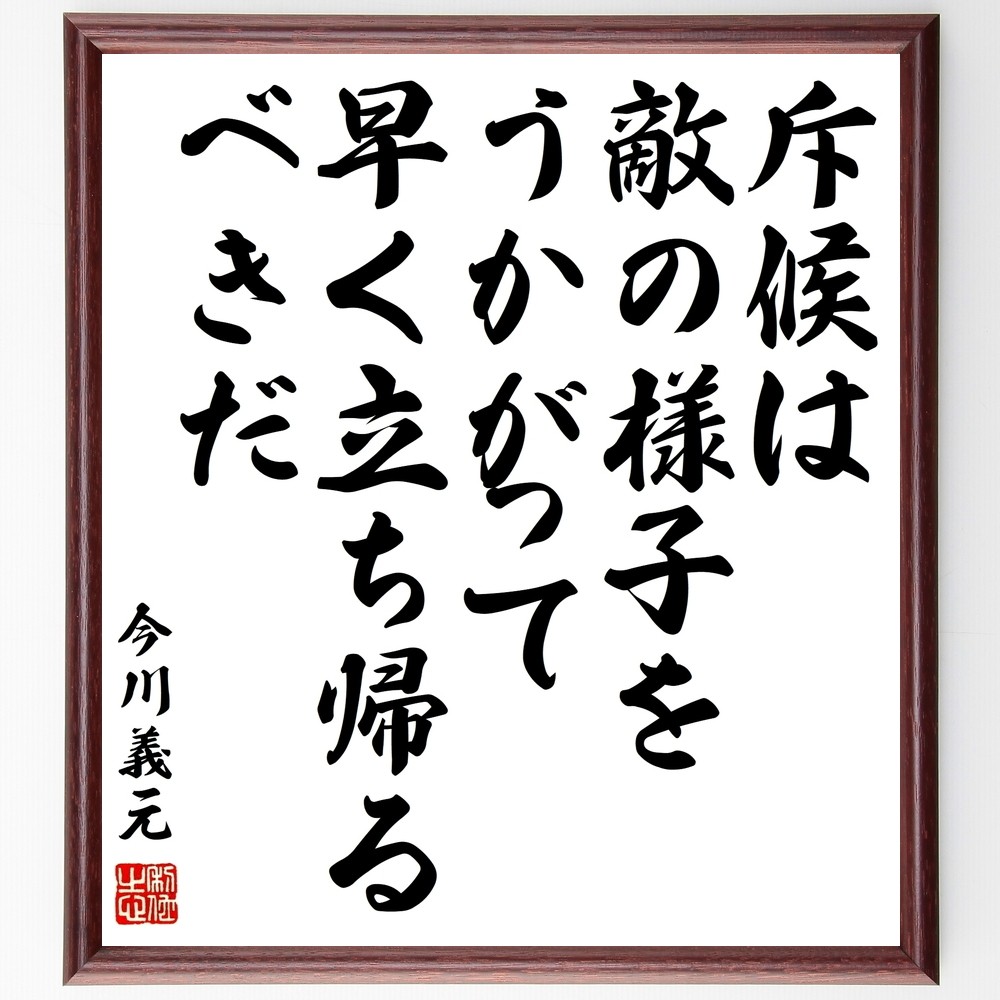 斥候は
敵の様子を
うかがって
早く立ち帰る
べきだ
今川義元